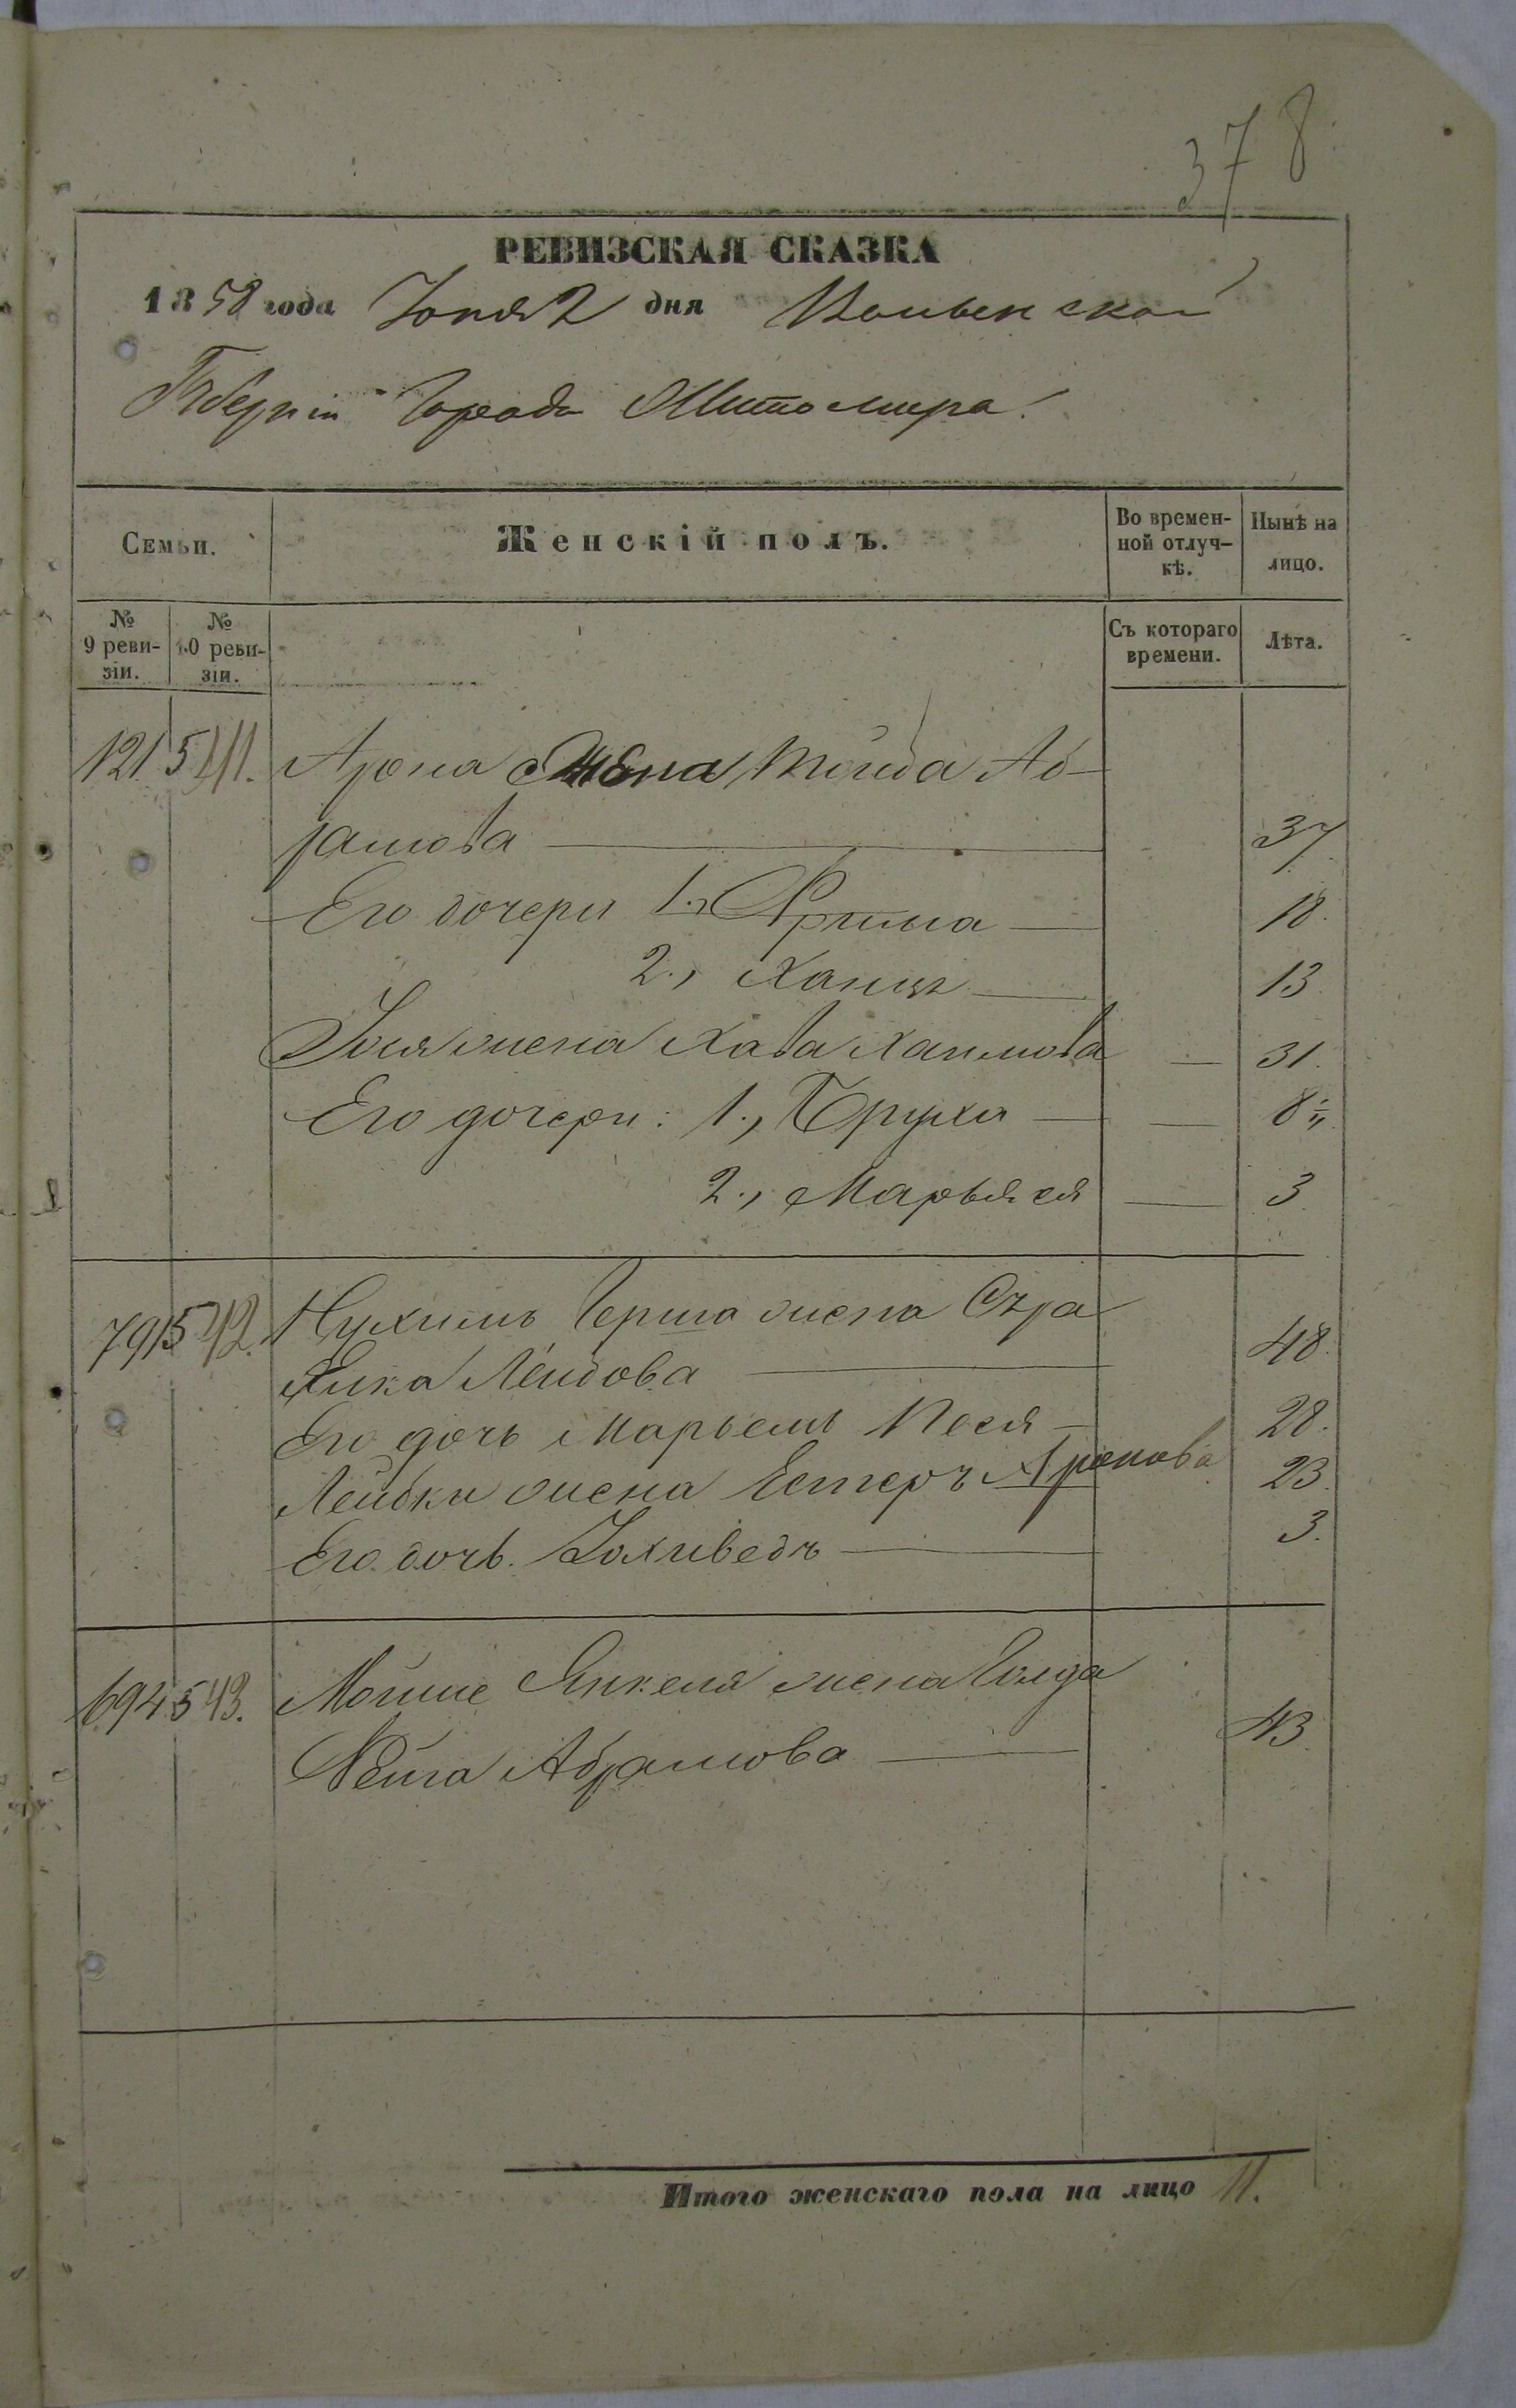 378
РЕВИЗСКАЯ СКАЗКА
1858 года Іюня 2 дня Волынской
Губерніи Города Житомира.
Семьи.
Женскій полъ.
Во времен-
ной отлуч-
кѣ.
Нынѣ на
лицо.
№
9 реви-
зіи.
№
10 реви-
зіи.
Съ котораго
времени.
Лѣта.
121 541. Арона жена Тойба Аб-
рамова 37
Его дочери 1., 18.
2., Ханця 13.
жена Хава Хаимова 31.
Его дочери: 1., Бруха 8
2., Марьяся 3
791 542. Нухимъ Герша жена Сура
Лейбова 48.
Его дочь Марьемъ Песя 28.
Лейбки жена Естеръ Аронова 23.
Его дочь. Іохиведъ 3.
694 543. Мошие Янкеля жена Голда
Нейга Абрамова 43
Итого женскаго пола на лицо 11.